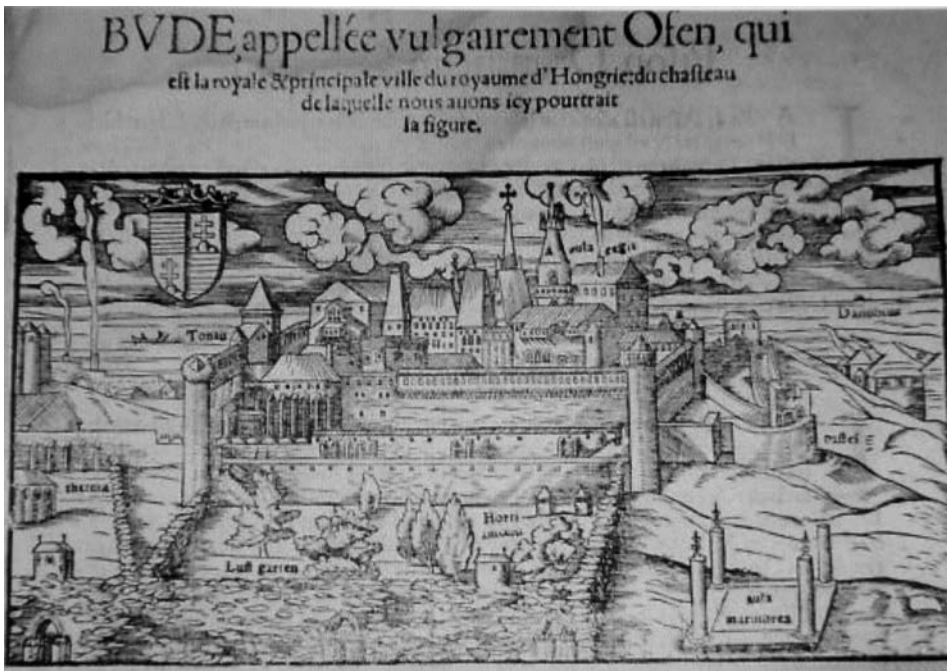 BVDE, appellée vulgairement Ofen, qui
eſt la royale & principale ville du royaume d'Hongrie: du chaſteau
de laquelle nous auons icy pourtrait
la figure.
aula regia
Tonau
Danubius
therma
Horti
Luſt garten
aula
marmorea